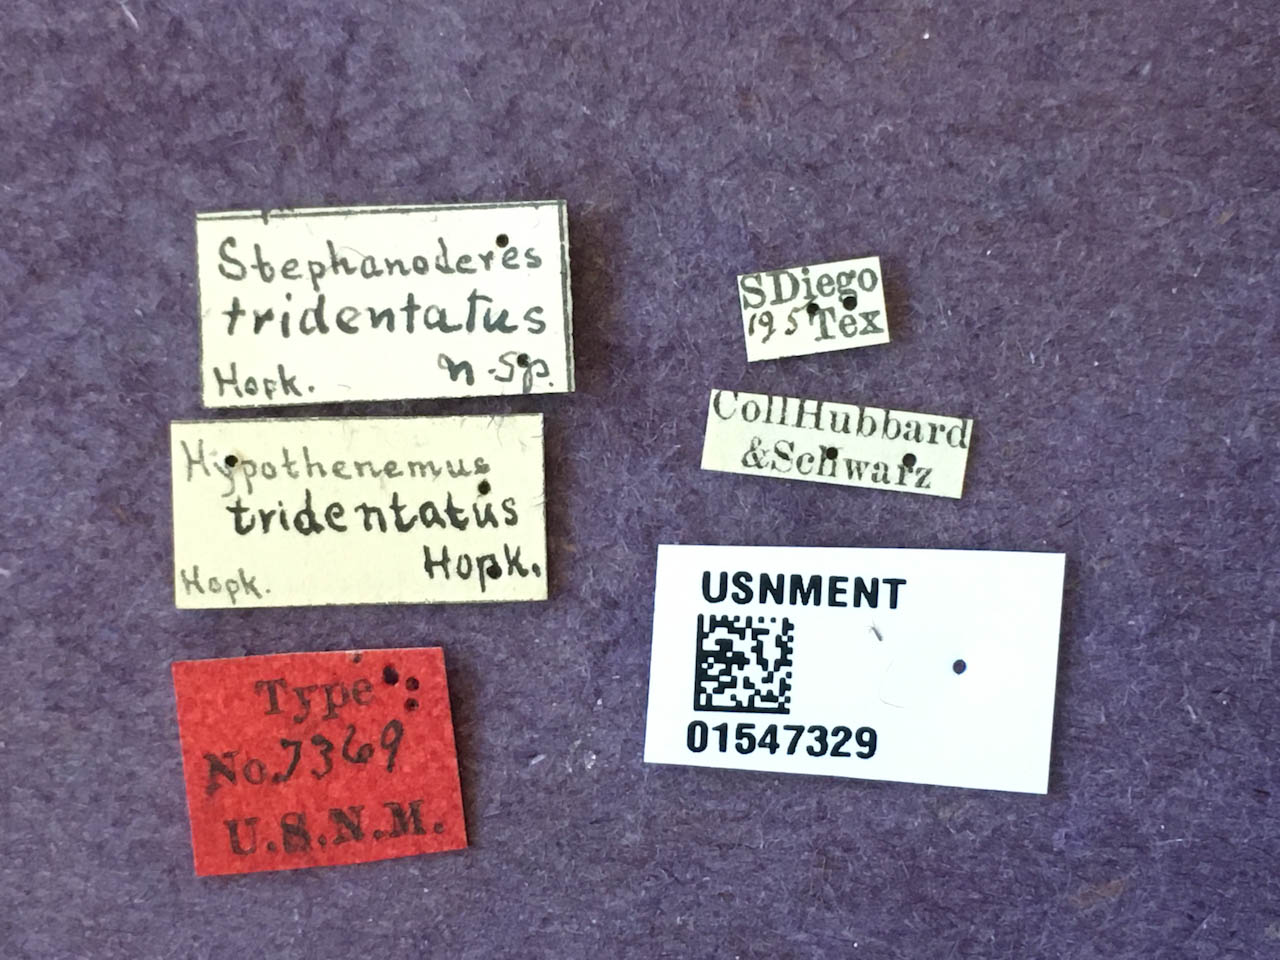 Stephanoderes
tridentatus
Hopk. n. sp.
Hypothenemus
tridentatus
Hopk.
Hopk.
Type
No. 7369
U.S.N.M.
SDiego
19 5 Tex
CollHubbard
&Schwarz
USNMENT
01547329